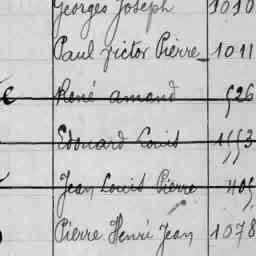 Georges Joseph 1010
Paul Victor Pierre 1011
René Amand 526
Edouard Louis 1553
Jean Louis Pierre 405
Pierre Henri Jean 1078